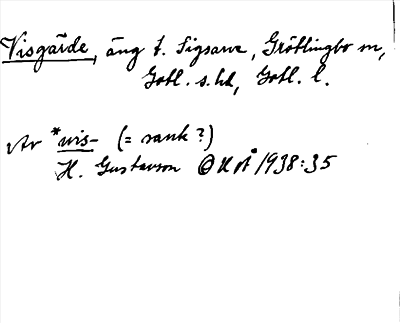 Visgärde, äng t. Sigsarve, Grötlingbo sn,
Gotl. s. hd, Gotl. l.
Av *wis- (= sank?)
H. Gustavson OUOÅ 1938:35